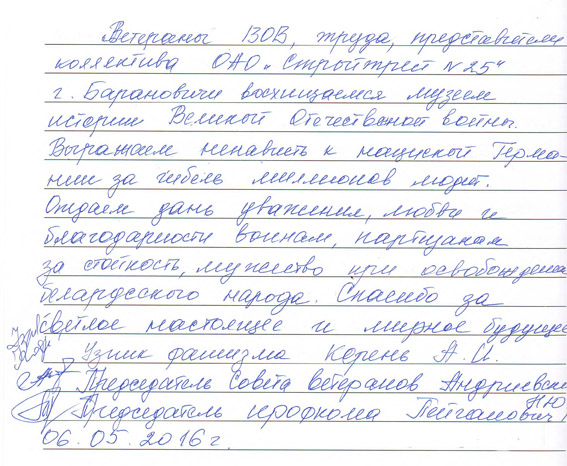 Ветераны ВОВ, труда, представители
коллектива ОАО „Стройтрест №25“
г. Барановичи восхищаемся музеем
истории Великой Отечественной войны.
Выражаем ненависть к нациской Герма-
нии за гибель миллионов людей.
Отдаем дань уважения, любви и
благодарности воинам, партизанам
за стойкость, мужество при освобождении
белардсского народа. Спасибо за
светлое настоящее и мирное будущее
Узник фашизма Корень А. И.
Председатель Совета ветеранов Андриевск
Председатель профкома
06.05.2016 г.